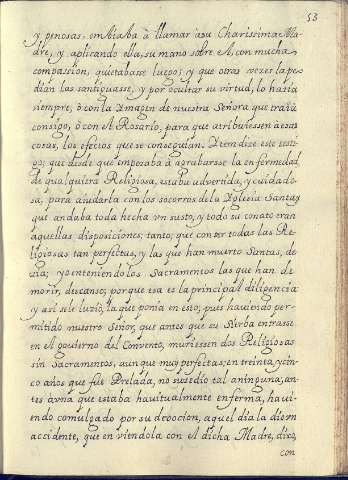 53
y penosas, embiaba à llamar à su Charissima Ma-
dre, y aplicando ella, su mano sobre el, con mucha
compassion, quietabase luego; y que otras vezes la pe-
dian las santiguasse, y por ocultar su virtud, lo hazia
siempre, ò con la Ymagen de nuestra Señora que traia
consigo, ò con el Rosario, para que atribuiessen à esas
cosas, los efectos que se conseguian. Ytem dize este testi-
go; que desde que empezaba à agrabarsse la enfermedad
de qualquiera Religiosa, estaba advertida, y cuidado-
sa, para aiudarla con los socorros de la Yglesia Santa;
que andaba toda hecha vn susto, y todo su conato eran
aquellas disposiciones; tanto; que con ser todas las Re-
ligiosas tan perfectas, y las que han muerto Santas, de-
zia; yo en teniendo los Sacramentos las que han de
morir, descanso; porque esa es la principal diligencia
y assi se le luziò, la que ponia en esto; pues haviendo per-
mitido nuestro Señor, que antes que su Sierba entrasse
en el govierno del Convento, muriessen dos Religiosas
sin Sacramentos, aunque muy perfectas; en treinta y cin-
co años que fue Prelada, no sucedio tal à ninguna; an-
tes à vna que estaba havitualmente enferma, havi-
endo comulgado por su devocion, aquel dia la dieron
accidente, que en viendola con el dicha Madre, dixo,
con